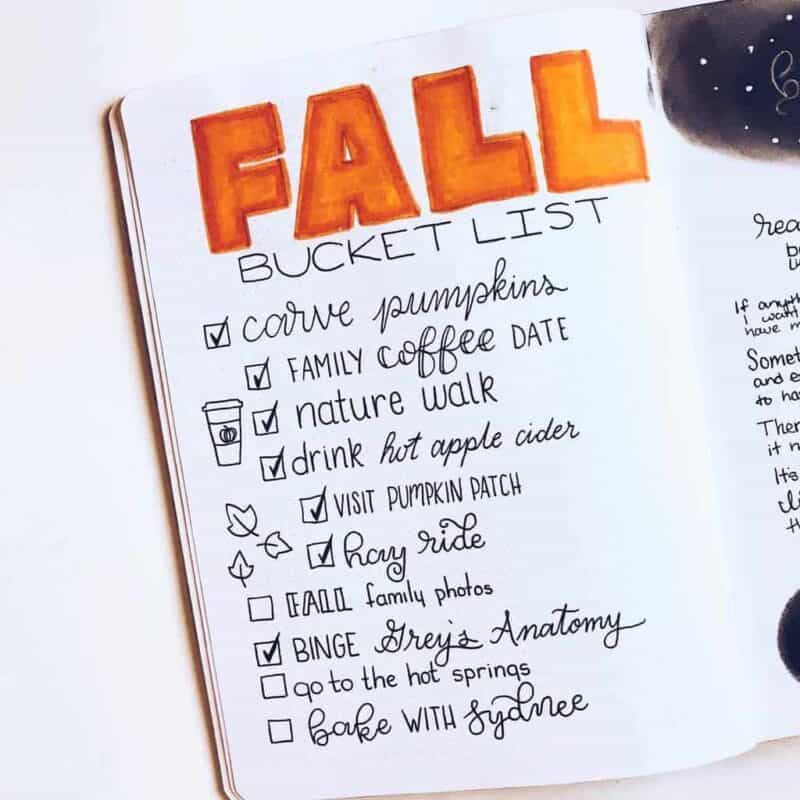 FALL
BUCKET LIST
carve pumpkins
FAMILY coffee DATE
nature walk
drink hot apple cider
VISIT PUMPKIN PATCH
hay ride
FALL family photos
BINGE Grey's Anatomy
go to the hot springs
bake WITH Sydnee
If
I want
have
and
to
it
It's